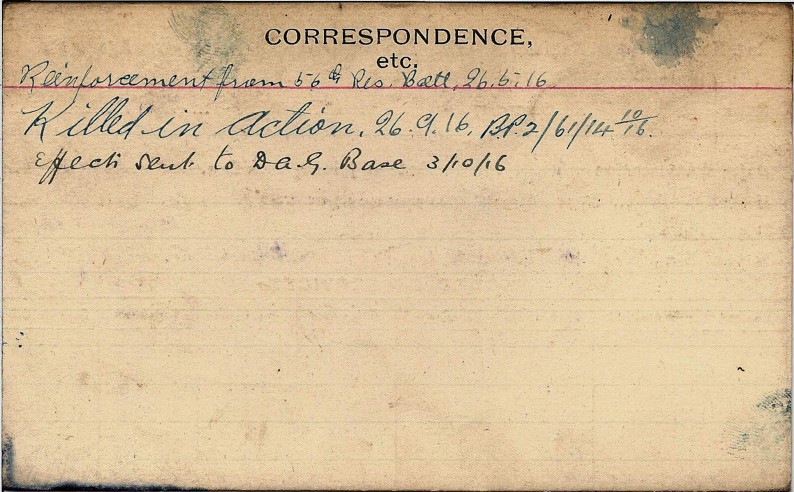 CORRESPONDENCE,
etc.
Reinforcement from 56th Res. Batt. 26.5.16.
Killed in Action. 26.9.16. B.P.2/61/14 10/16.
Effects sent to D.A.G. Base 3/10/16